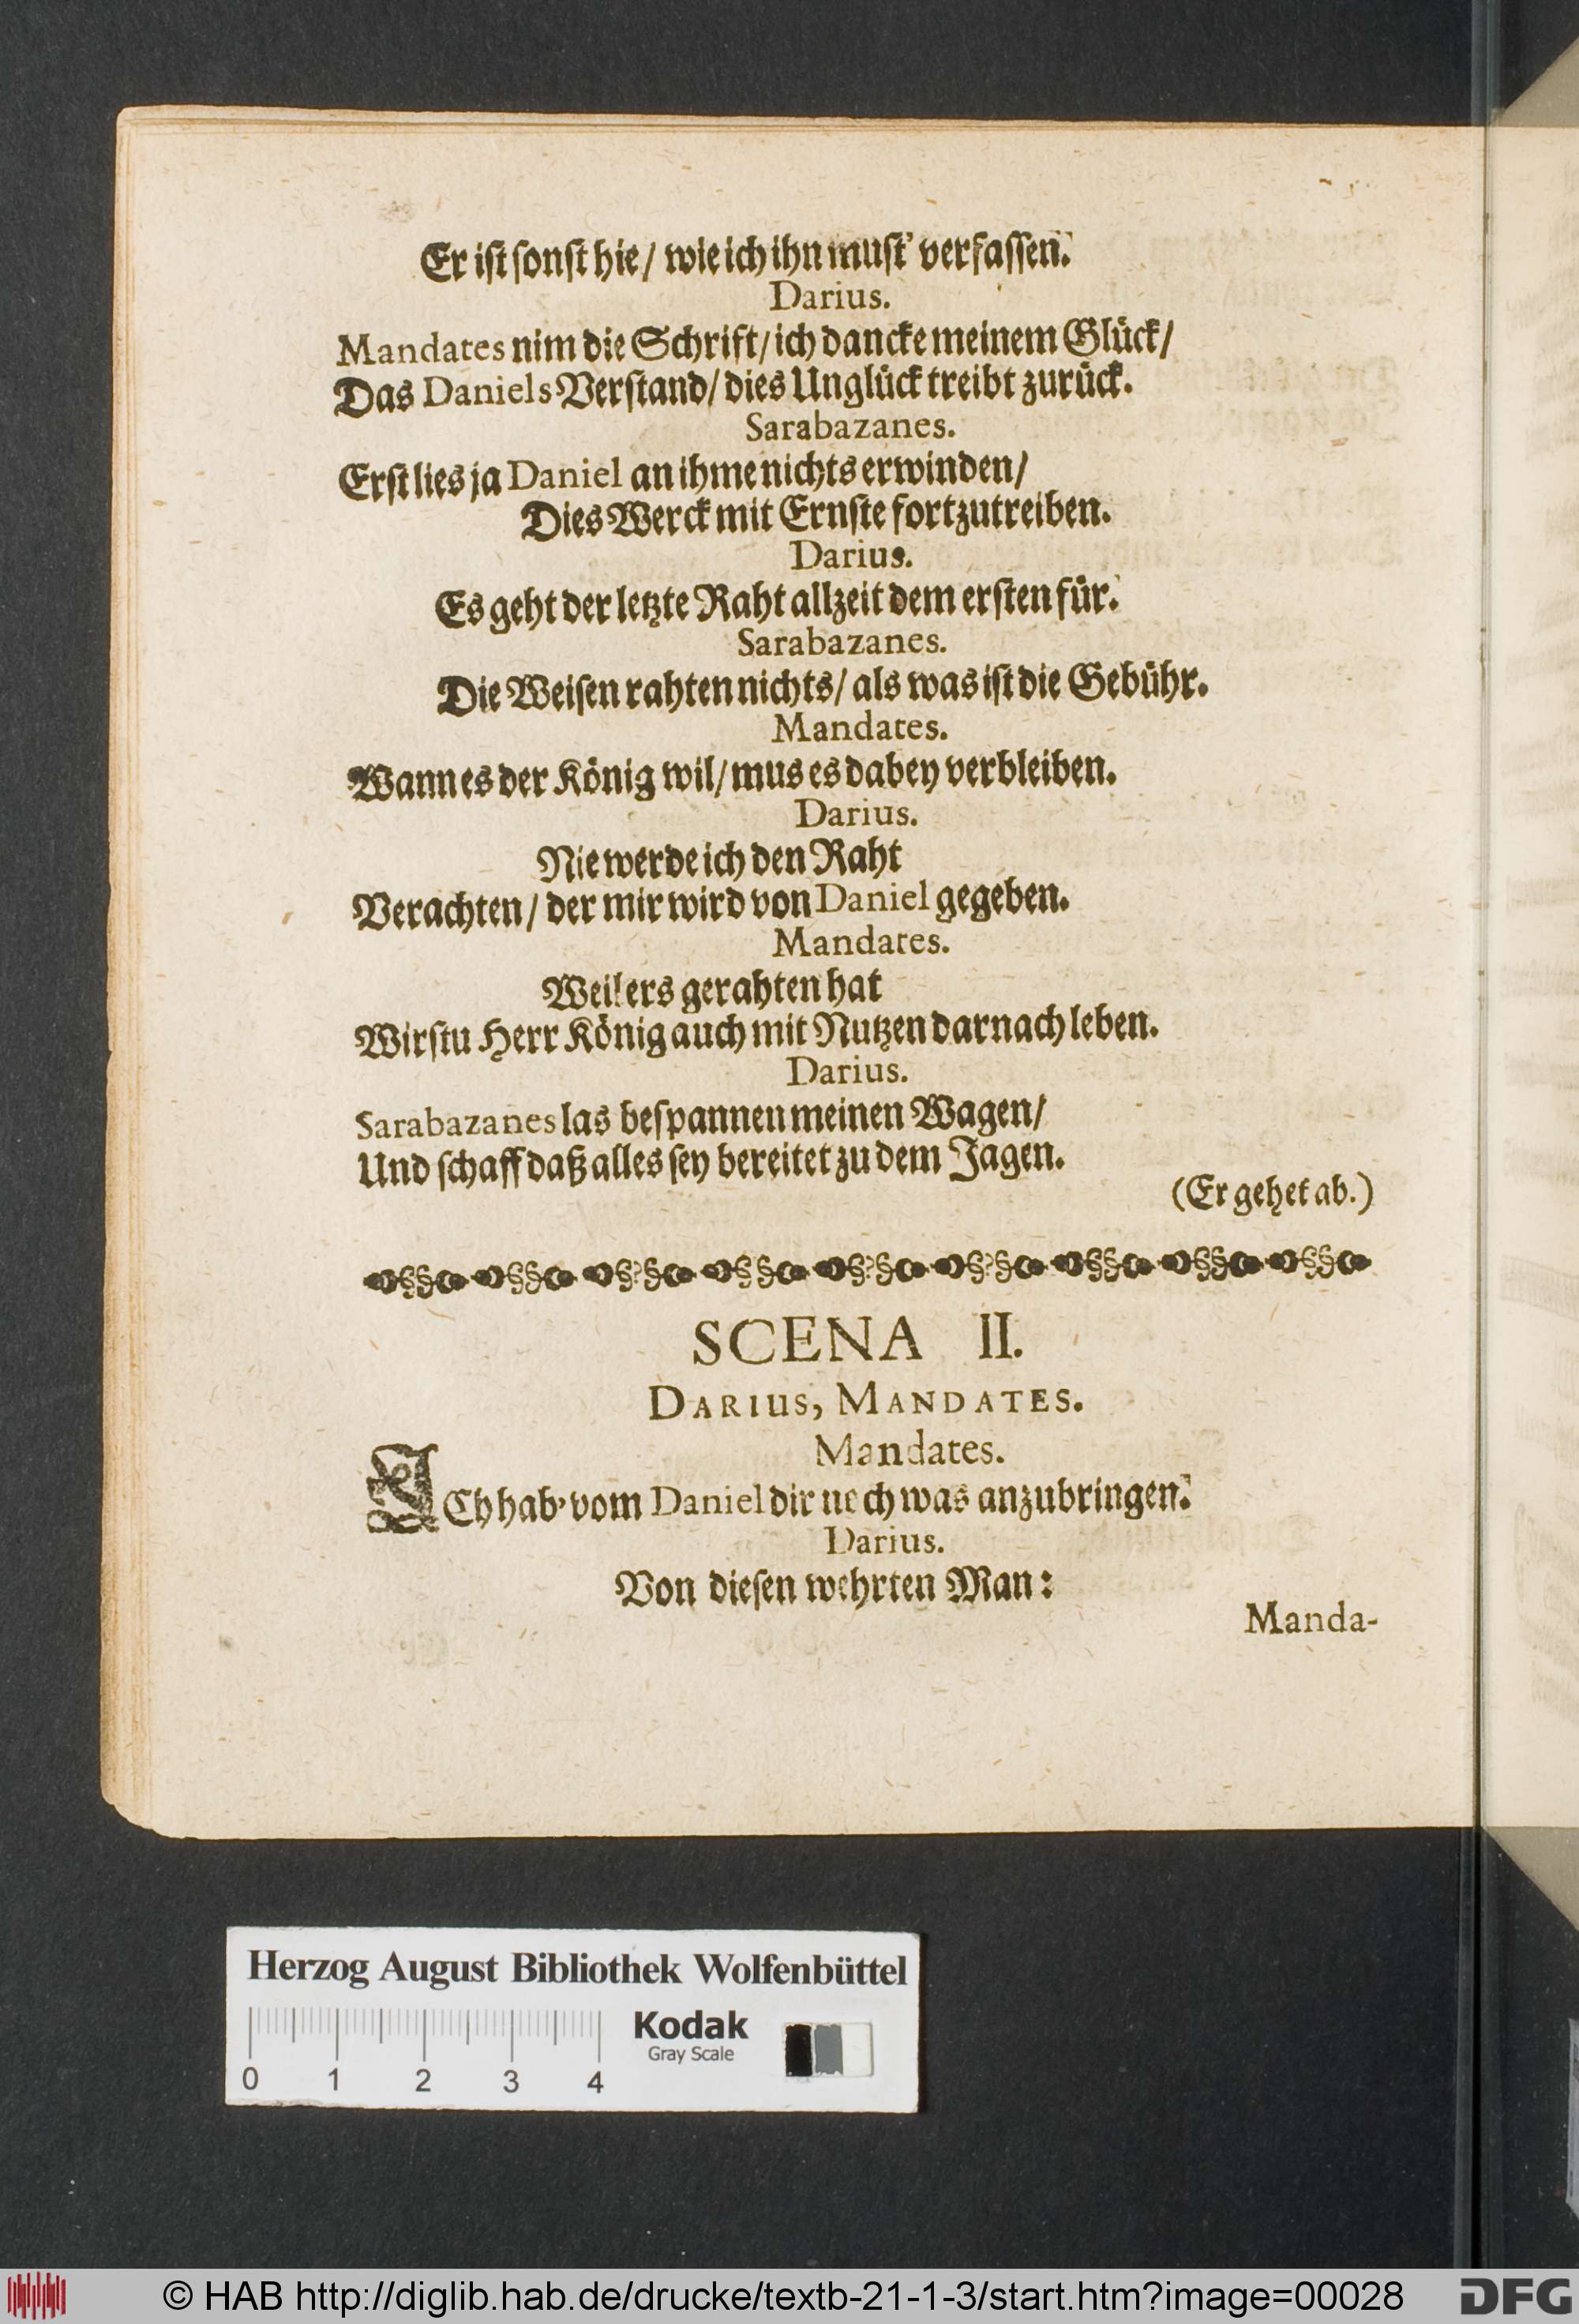 Er iſt ſonſt hie/ wie ich ihn muſt' verfaſſen.
Darius.
Mandates nim die Schrift/ ich dancke meinem Glück/
Das Daniels Verſtand/ dies Unglück treibt zurück.
Sarabazanes.
Erſt lies ja Daniel an ihme nichts erwinden/
Dies Werck mit Ernſte fortzutreiben.
Darius.
Es geht der letzte Raht allzeit dem erſten für.
Sarabazanes.
Die Weiſen rahten nichts/ als was iſt die Gebühr.
Mandates.
Wann es der König wil/ mus es dabey verbleiben.
Darius.
Nie werde ich den Raht
Verachten/ der mir wird von Daniel gegeben.
Mandates.
Weil ers gerahten hat
Wirſtu Herr König auch mit Nutzen darnach leben.
Darius.
Sarabazanes las beſpannen meinen Wagen/
Und ſchaff daß alles ſey bereitet zu dem Jagen.
(Er gehet ab.)
SCENA II.
DARIUS, MANDATES.
Mandates.
ICh hab' vom Daniel dir noch was anzubringen.
Darius.
Von dieſen wehrten Man:
Manda-
Herzog August Bibliothek Wolfenbüttel
Kodak
Gray Scale
0 1 2 3 4
© HAB http://diglib.hab.de/drucke/textb-21-1-3/start.htm?image=00028
DFG